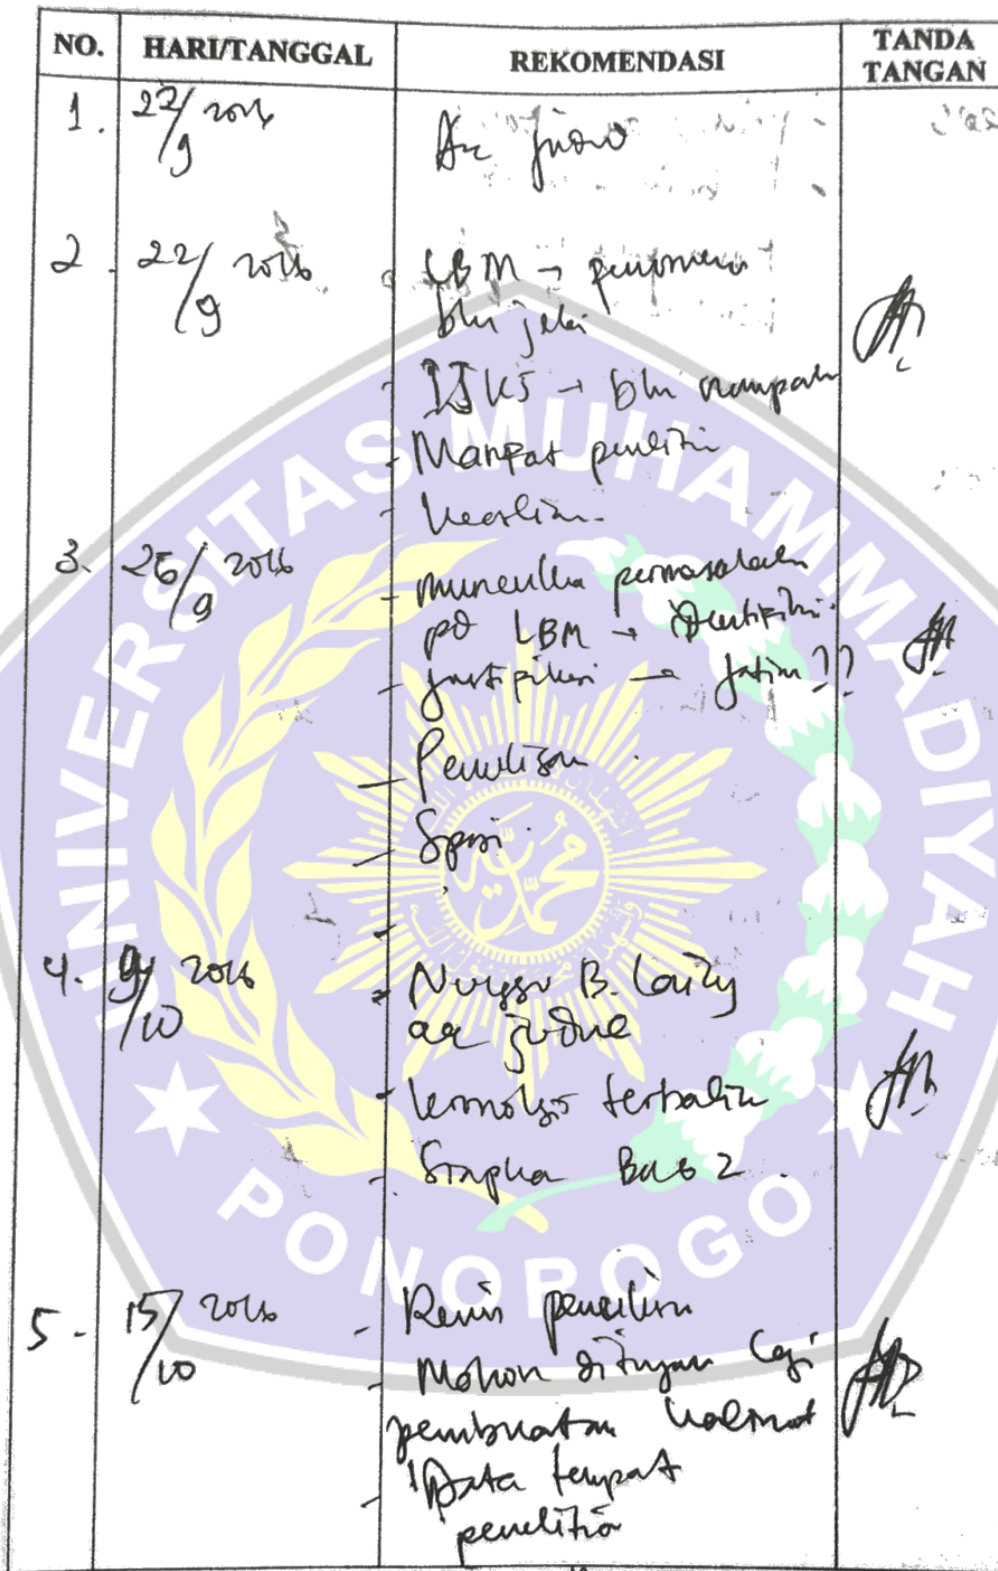 NO. HARI/TANGGAL REKOMENDASI TANDA TANGAN
1. 22/9 2016 Acc judul
2. 22/9 2016 LBM → fenomena
blm jelas
- IJKS → blm nampak
- Manfaat peneliti
- Keaslian
3. 26/9 2016 - munculka permasalahan
pd LBM → identifikasi
- justifikasi → Jatim??
- Penulisan
- Spasi
4. 9/10 2016 - Nunggu B. Laily
acc judul
- kronologis terbalik
- Siapka Bab 2
5. 15/10 2016 - Revisi penulisan
- Mohon ditinjau lagi
pembuatan kalimat
- Data tempat
penelitian
UNIVERSITAS MUHAMMADIYAH
PONOROGO
محمد